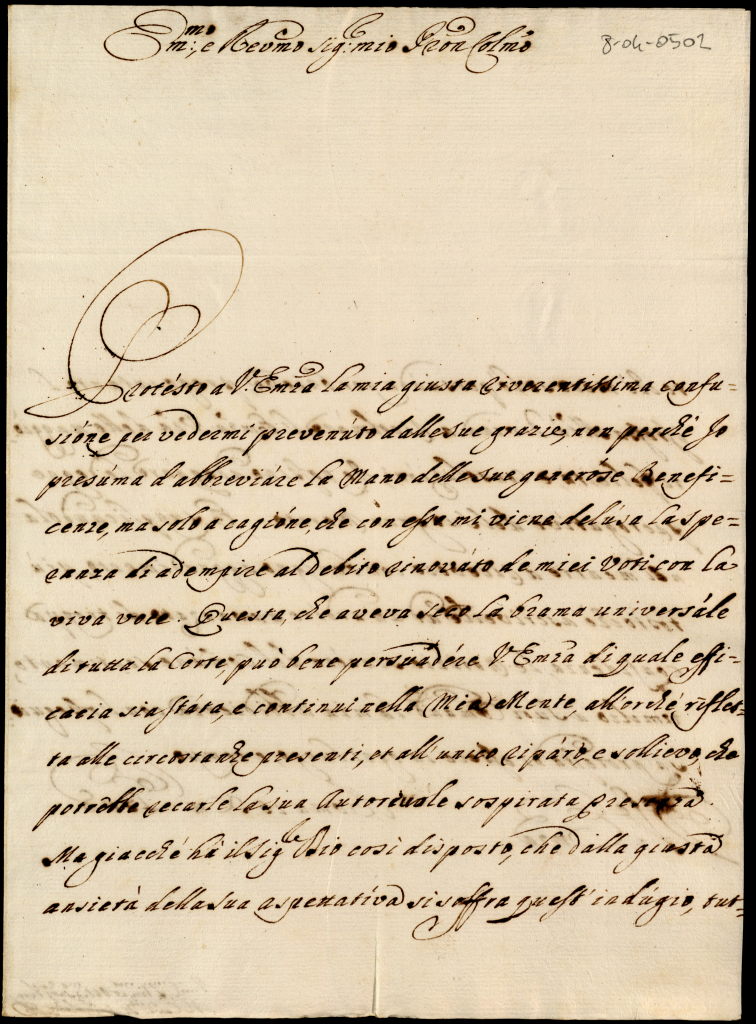 Em:mo, e Reumo Sig:r mio Pron Colmo
8-04-0502
Protésto a V. Emza la mia giusta riverentissima confu-
sióne per vedermi prevenúto dalle sue grazie, non perchè Jo
presúma d'abbreviáre la Mano delle sue generóse Benefi-
cenze, ma solo a cagióne, che con esse mi viene delúsa la spe-
ranza di adempire al debito rinováto de miei voti con la
viva voce. Questa, che aveva seco la brama universále
di tutta la Corte, può bene persuadére V. Emza di quale effi-
cacia sia státa, e continui nella Mia Mente, allorché riflet-
ta alle circostanze presenti, et all'unico ripáro, e sollievo, che
potrebbe recarle la sua Autorevále sospirata Presenza.
Ma giacché hà il Sig:re Dio così disposto, che dalla giusta
ansietà della sua aspettatíva si soffra quest'indúgio, tut-